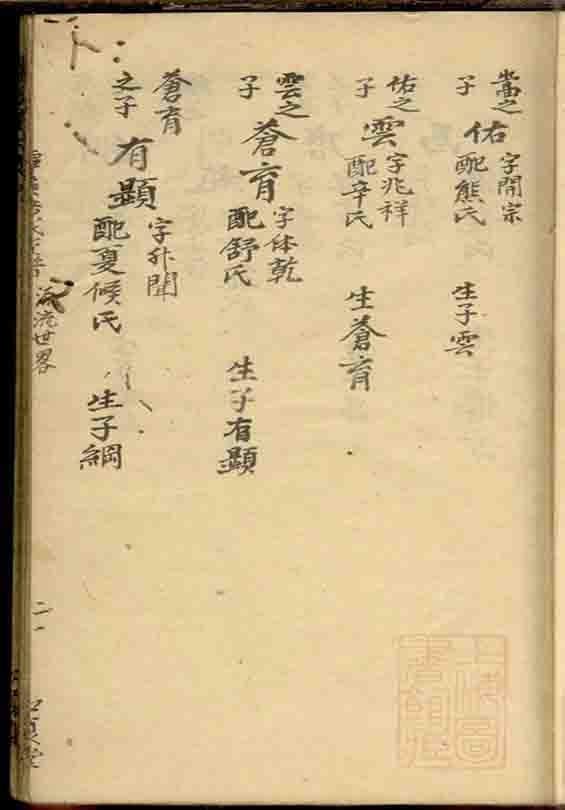 嵩之子 佑 字開宗 配熊氏 生子雲
佑之子 雲 字兆祥 配辛氏 生蒼育
雲之子 蒼育 字体乾 配舒氏 生子有顯
蒼育之子 有顯 字升聞 配夏候氏 生子綱
源流世畧
上海圖書館藏